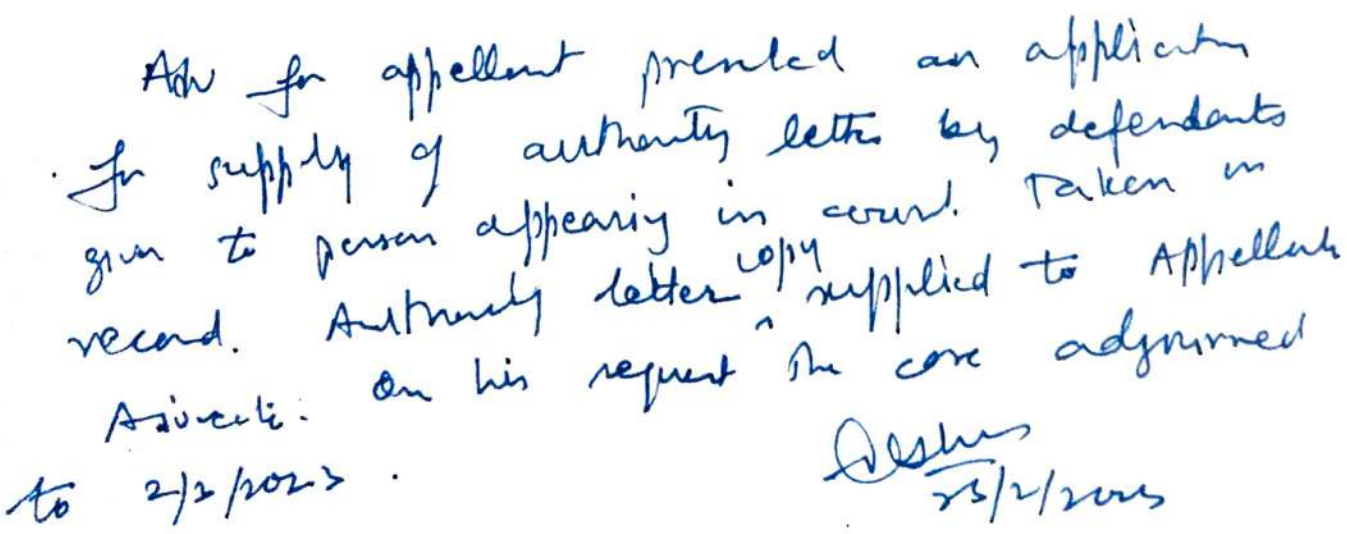 Adv for appellant presented an application
for supply of authority letter by defendants
given to person appearing in court. Taken in
record. Authority letter copy supplied to Appellant
Advocate. On his request the case adjourned
to